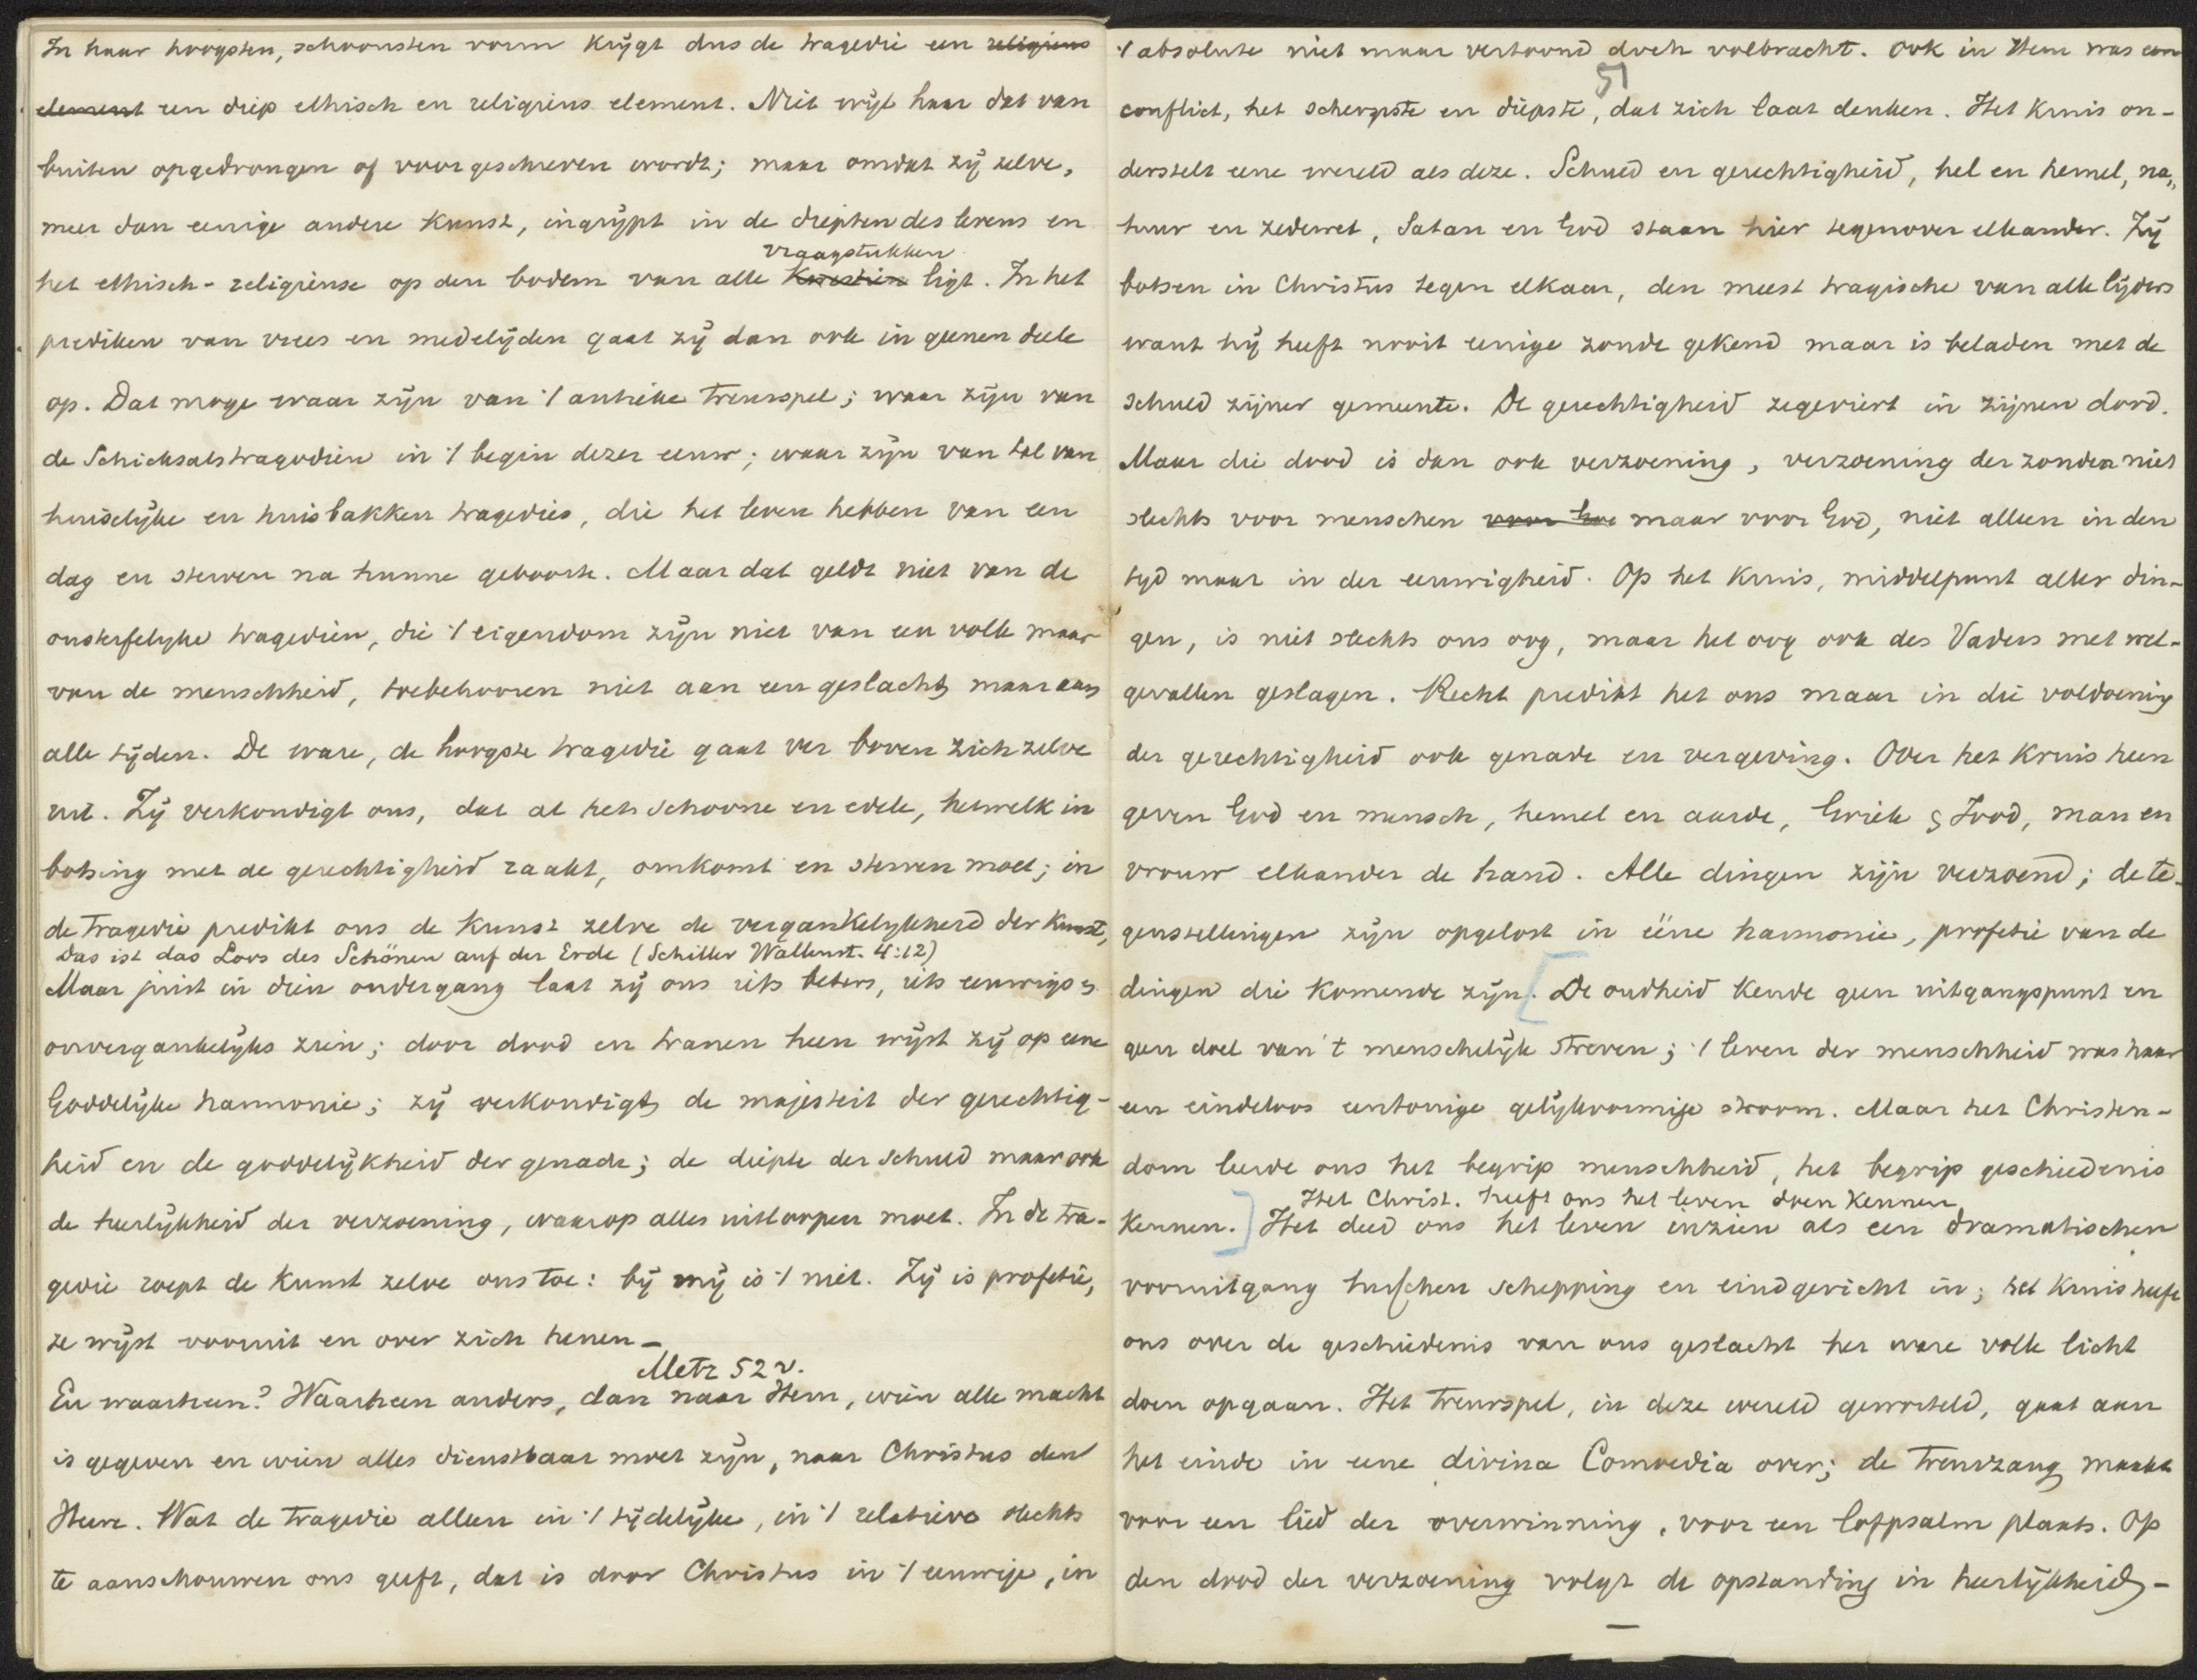 In haar hoogsten, schoonsten vorm krijgt dus de tragedie een religieus
element een diep ethisch en religieus element. Niet wijl haar dat van
buiten opgedrongen of voorgeschreven wordt; maar omdat zij zelve,
meer dan eenige andere kunst, ingrijpt in de diepten des levens en
vraagstukken
het ethisch-religieuse op den bodem van alle kwestien ligt. In het
prediken van vrees en medelijden gaat zij dan ook in geenen deele
op. Dat moge waar zijn van 't antieke treurspel; waar zijn van
de Schicksalstragödien in 't begin dezer eeuw; waar zijn van tal van
huiselijke en huisbakken tragedies, die het leven hebben van een
dag en sterven na hunne geboorte. Maar dat geldt niet van de
onsterfelyke tragedien, die 't eigendom zijn niet van een volk maar
van de menschheid, toebehooren niet aan een geslacht maar aan
alle tijden. De ware, de hoogste tragedie gaat ver boven zich zelve
uit. Zij verkondigt ons, dat al het schoone en edele, hetwelk in
botsing met de gerechtigheid raakt, omkomt en sterven moet; in
de tragedie predikt ons de kunst zelve de vergankelykheid der kunst,
Das ist das Loos des Schönen auf der Erde (Schiller Wallenst. 4:12)
Maar juist in dien ondergang laat zij ons iets beters, iets eeuwigs &
onvergankelijks zien; door dood en tranen heen wijst zij op eene
Goddelijke harmonie; zij verkondigt de majesteit der gerechtig-
heid en de goddelijkheid der genade; de diepte der schuld maar ook
de heerlijkheid der verzoening, waarop alles uitloopen moet. In de tra-
gedie roept de kunst zelve ons toe: bij mij is 't niet. Zij is profetie,
ze wijst vooruit en over zich henen –
Metz 52 v.
En waarheen? Waarheen anders, dan naar Hem, wien alle macht
is gegeven en wien alles dienstbaar moet zijn, naar Christus den
Heere. Wat de tragedie alleen in 't tijdelijke, in 't relatieve slechts
te aanschouwen ons geeft, dat is door Christus in 't eeuwige, in
't absolute niet maar vertoond doch volbracht. Ook in Hem was een
51
conflict, het scherpste en diepste, dat zich laat denken. Het kruis on-
derstelt eene wereld als deze. Schuld en gerechtigheid, hel en hemel, na,,
tuur en zedewet, Satan en God staan hier tegenover elkander. Zij
botsen in Christus tegen elkaar, den meest tragische van alle lijders
want hij heeft nooit eenige zonde gekend maar is beladen met de
schuld zijner gemeente. De gerechtigheid zegeviert in zijnen dood.
Maar die dood is dan ook verzoening, verzoening der zonden niet
slechts voor menschen voor God maar voor God, niet alleen in den
tyd maar in der eeuwigheid. Op het kruis, middelpunt aller din-
gen, is niet slechts ons oog, maar het oog ook des Vaders met wel-
gevallen geslagen. Recht predikt het ons maar in die voldoening
der gerechtigheid ook genade en vergeving. Over het kruis heen
geven God en mensch, hemel en aarde, Griek & Jood, man en
vrouw elkander de hand. Alle dingen zijn verzoend; de te-
genstellingen zijn opgelost in ééne harmonie, profetie van de
dingen die komende zijn. [De oudheid kende geen uitgangspunt en
geen doel van 't menschelijk streven; 't leven der menschheid was haar
een eindeloos eentonige gelijkvormige stroom. Maar het Christen-
dom leerde ons het begrip menschheid, het begrip geschiedenis
Het Christ. heeft ons het leven doen kennen
kennen.] Het deed ons het leven inzien als een dramatischen
vooruitgang tusschen schepping en eindgericht in; het kruis heeft
ons over de geschiedenis van ons geslacht het ware volle licht
doen opgaan. Het treurspel, in deze wereld geworteld, gaat aan
het einde in eene divina Comoedia over; de treurzang maakt
voor een lied der overwinning, voor een lofpsalm plaats. Op
den dood der verzoening volgt de opstanding in heerlijkheid –
—